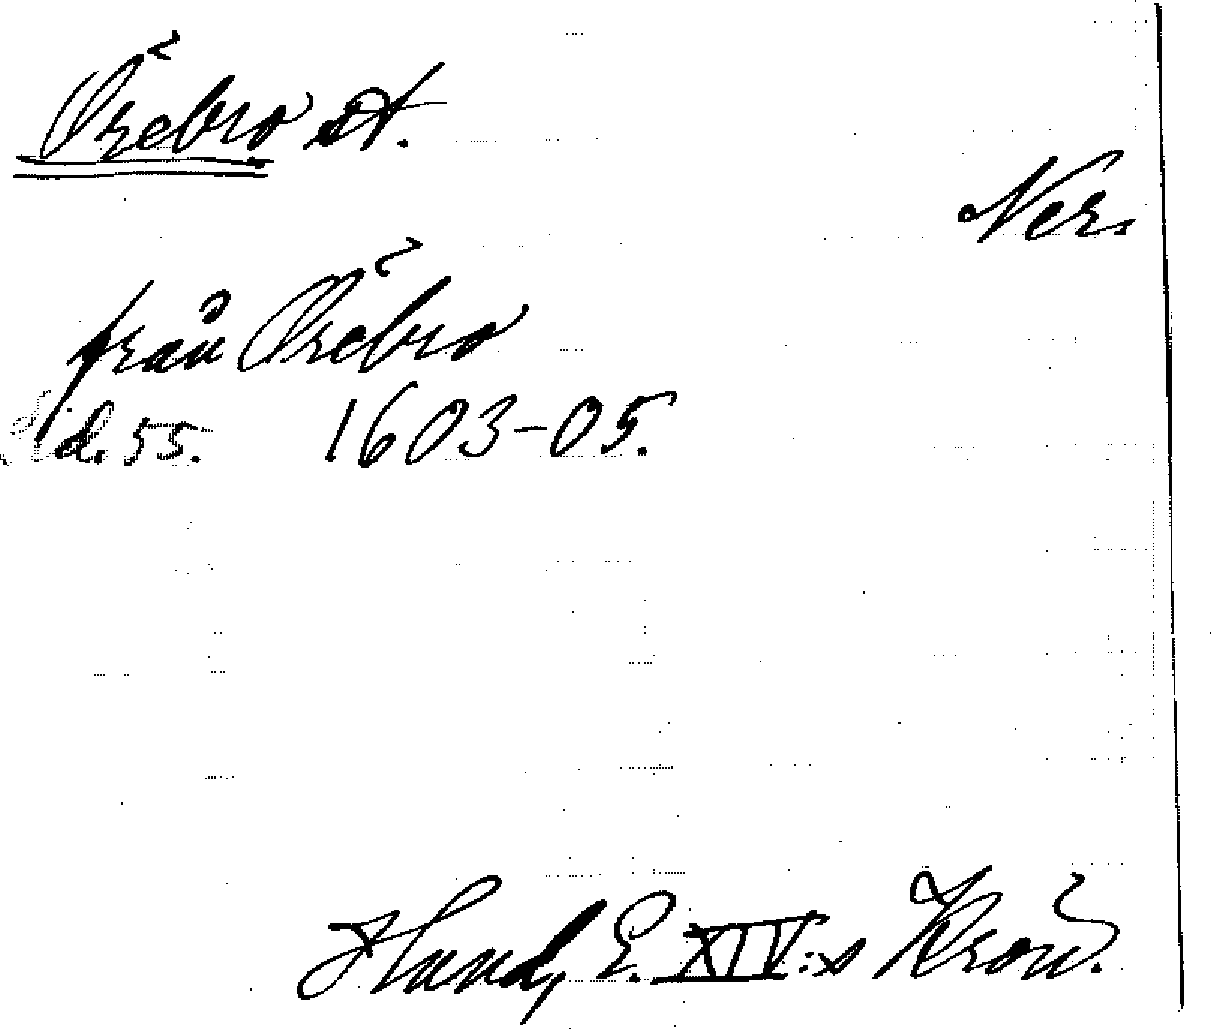 Örebro st.
Ner.
från Örebro
d. 55. 1603-05.
Hund, E. XIV:s Krön.